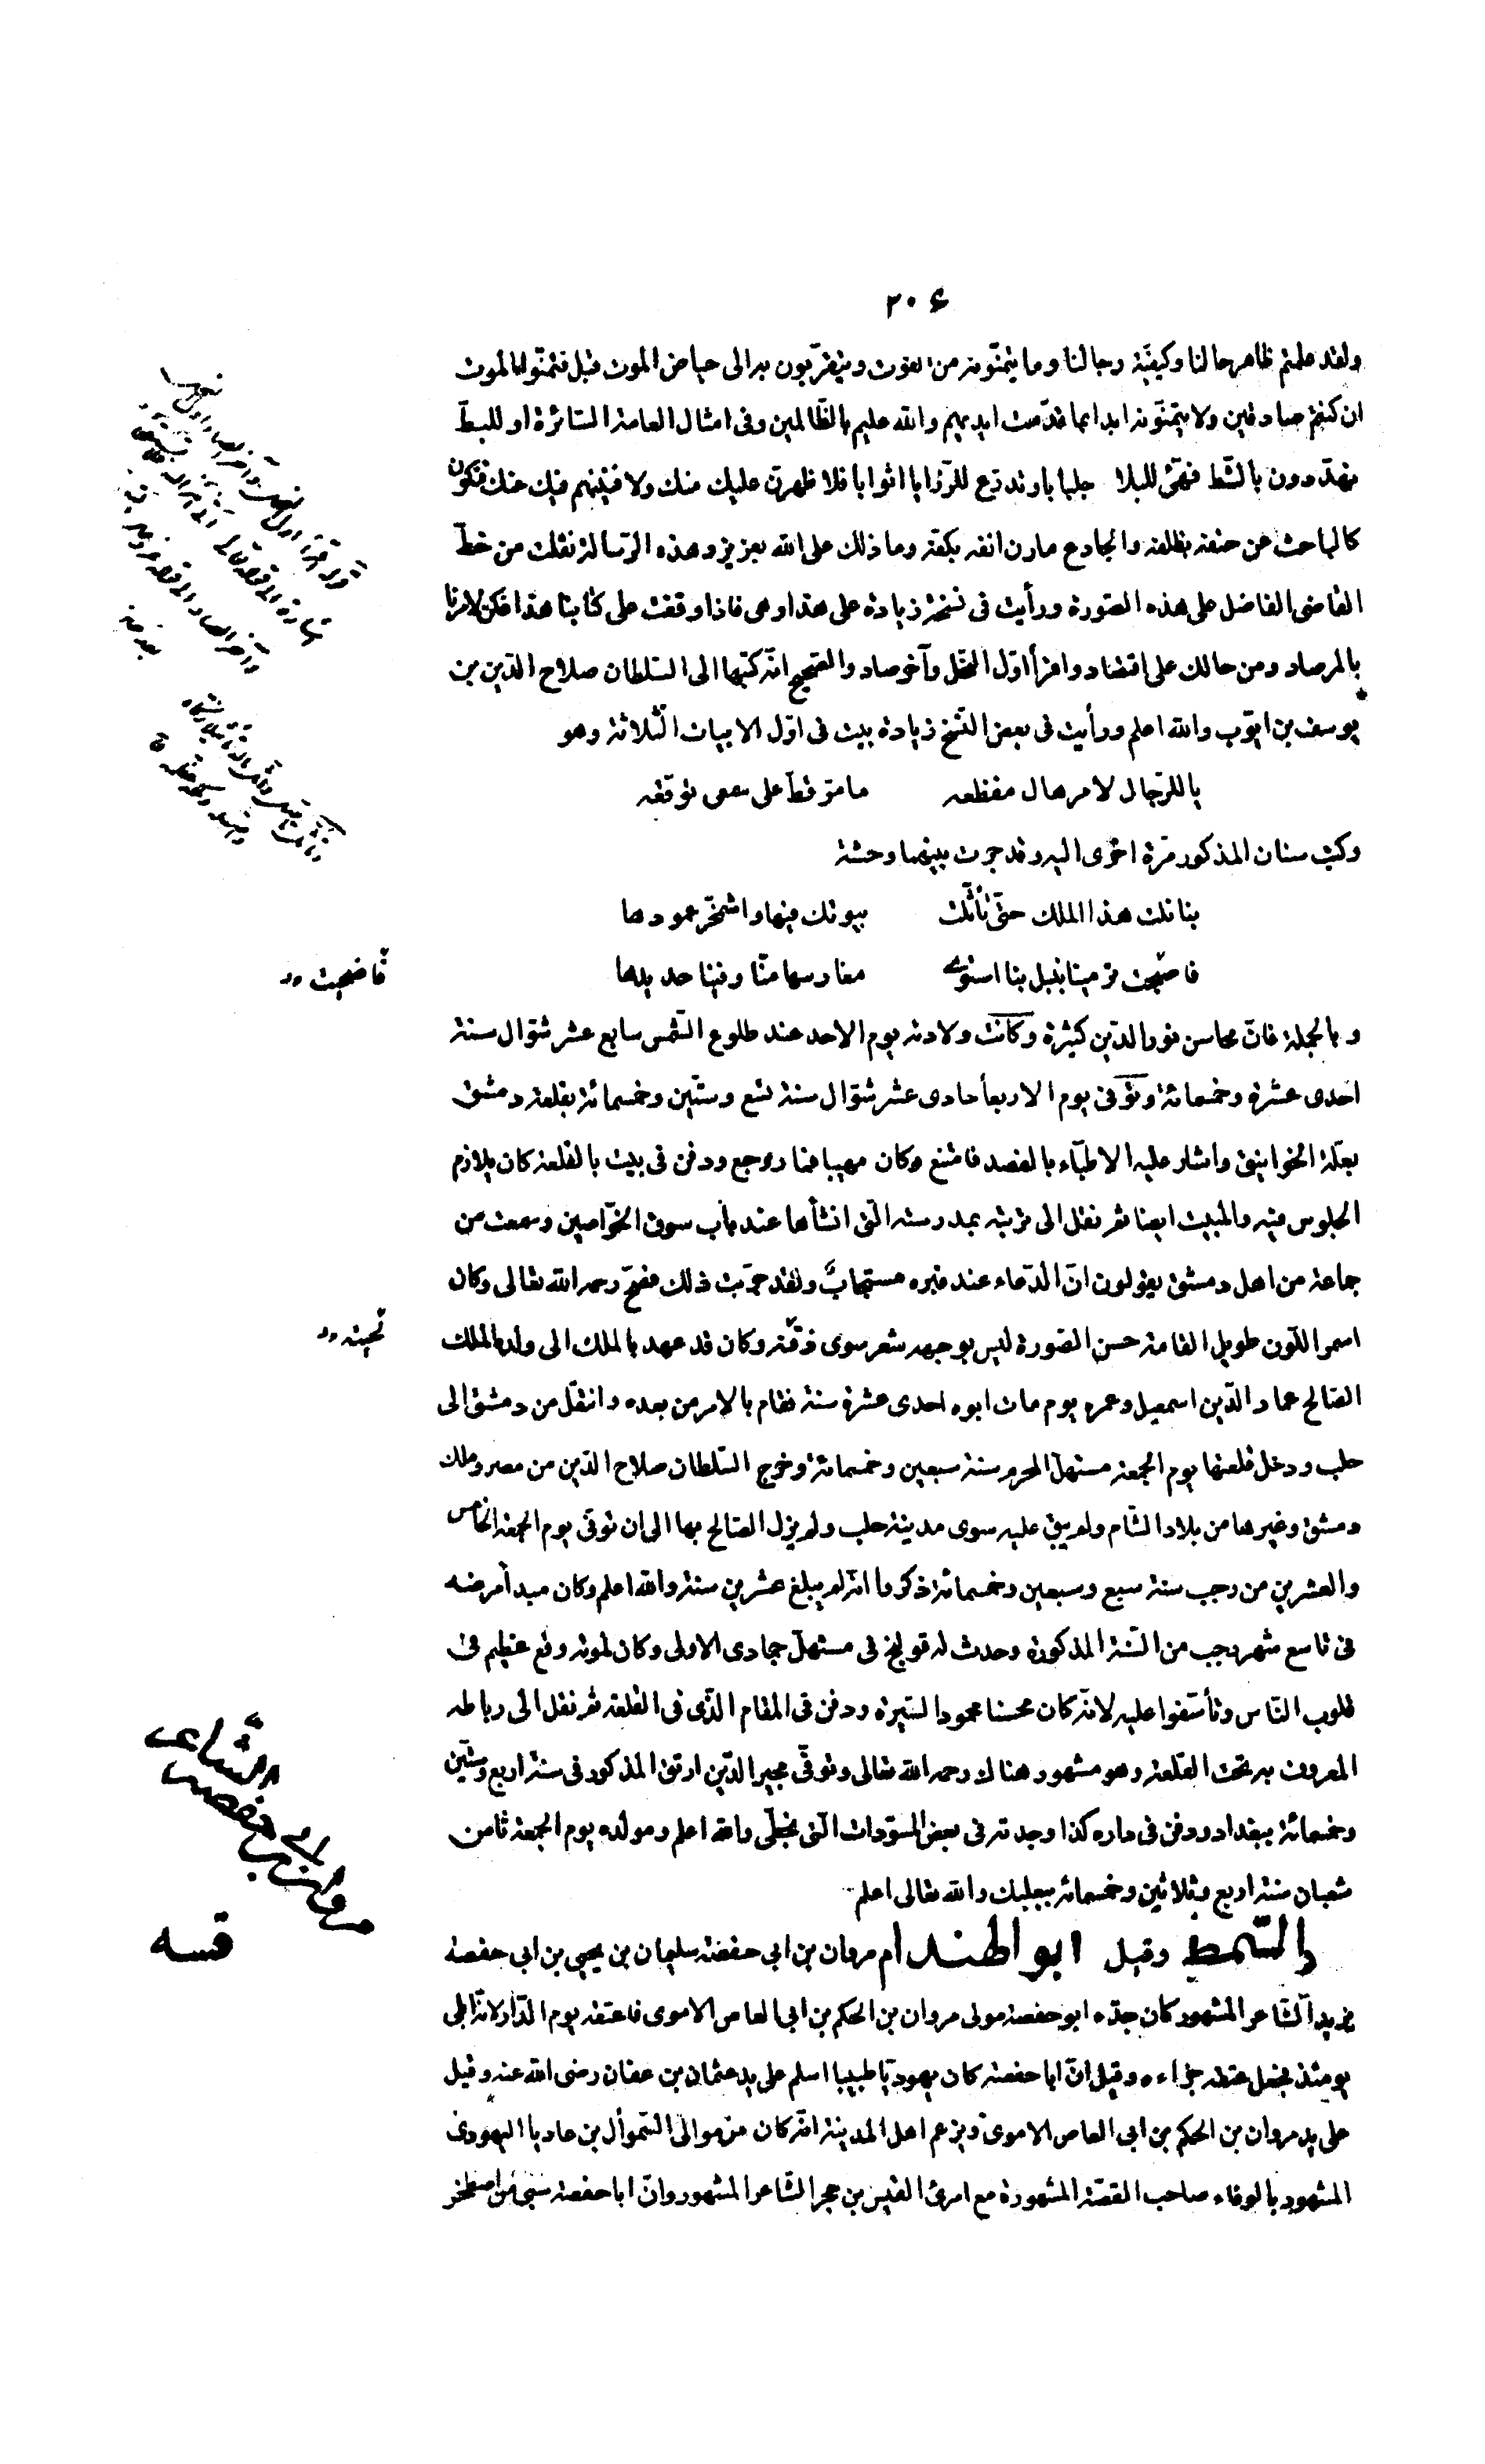 ۲۰۶
ولقد علمتم ظاهر حالنا وكيفيّة رجالنا وما يتمنّونه من الفوت ويتقرّبون به الى حياض الموت قل فتمنّوا الموت
ان كنتم صادقين ولا يتمنّونه ابدا بما قدّمت ايديهم والله عليم بالظّالمين وفى امثال العامة السّائرة او للبطّ
تهدّدون بالشّط فهيّئ للبلايا جلبابا وتدرّع للرّزايا اثوابا فلا ظهرنّ عليك منك ولا فنينهم فيك عنك فتكون
كالباحث عن حتفه بظلفه والجادع مارن انفه بكفّه وما ذلك على الله بعزيز وهذه الرّسالة نقلت من خطّ
القاضى الفاضل على هذه الصّورة ورأيت فى نسخة زيادة على هذا وهى فاذا وقفت على كتابنا هذا فكن لامرنا
بالمرصاد ومن حالك على اقتصاد واقرأ اوّل النّحل وآخر صاد والصّحيح انّه كتبها الى السّلطان صلاح الدّين بن
يوسف بن ايّوب والله اعلم ورأيت فى بعض النّسخ زيادة بيت فى اوّل الابيات الثّلاثة وهو
يا للرّجال لامر هال مفظعه ما مرّ قطّ على سمعى توقّعه
وكتب سنان المذكور مرّة اخرى اليه وقد جرت بينهما وحشة
بنا نلت هذا الملك حتّى تأثّلت بيوتك فيها واشمخرّ عمودها
فاصبحت ترمينا بنبل بنا استوى مغارسها منّا وفينا حديدها
فاضحيت
وبالجملة فانّ محاسن نور الدّين كثيرة وكانت ولادته يوم الاحد عند طلوع الشّمس سابع عشر شوّال سنة
احدى عشرة وخمسمائة وتوفى يوم الاربعاء حادى عشر شوّال سنة تسع وستّين وخمسمائة بقلعة دمشق
بعلّة الخوانيق واشار عليه الاطبّاء بالفصد فامتنع وكان مهيبا فما روجع ودفن فى بيت بالقلعة كان يلازم
الجلوس فيه والمبيت ايضا ثم نقل الى تربته بمدرسته الّتى انشأها عند باب سوق الخوّاصين وسمعت من
جماعة من اهل دمشق يقولون انّ الدّعاء عند قبره مستجاب ولقد جرّبت ذلك فصحّ رحمه الله تعالى وكان
اسمر اللّون طويل القامة حسن الصّورة ليس بوجهه شعر سوى ذقنه وكان قد عهد بالملك الى ولده الملك
لحيته
الصّالح عماد الدّين اسمعيل وعمره يوم مات ابوه احدى عشرة سنة فقام بالامر من بعده وانتقل من دمشق الى
حلب ودخل قلعتها يوم الجمعة مستهلّ المحرم سنة سبعين وخمسمائة وخرج السّلطان صلاح الدّين من مصر وملك
دمشق وغيرها من بلاد الشّام ولم يبق عليه سوى مدينة حلب ولم يزل الصّالح بها الى ان توفّى يوم الجمعة الخامس
والعشرين من رجب سنة سبع وسبعين وخمسمائة ذكروا انّه لم يبلغ عشرين سنة والله اعلم وكان مبدأ مرضه
فى تاسع شهر رجب من السّنة المذكورة وحدث له قولنج فى مستهلّ جمادى الاولى وكان لموته وقع عظيم فى
قلوب النّاس وتأسّفوا عليه لانّه كان محسنا محمود السّيرة ودفن فى المقام الّذى فى القلعة ثم نقل الى رباطه
المعروف به تحت القلعة وهو مشهور هناك رحمه الله تعالى وتوفّى مجير الدّين ارتق المذكور فى سنة اربع وستّين
وخمسمائة ببغداد ودفن فى داره كذا وجدته فى بعض المسوّدات الّتى بخطّى والله اعلم ومولده يوم الجمعة ثامن
شعبان سنة اربع وثلاثين وخمسمائة ببعلبك والله تعالى اعلم
مروان بن ابى حفصه الشّاعر
والسّمط وقيل ابو الهندام مروان بن ابى حفصة سليمان بن يحيى بن ابى حفصة
يزيد الشّاعر المشهور كان جدّه ابو حفصة مولى مروان بن الحكم بن ابى العاص الاموى فاعتقه يوم الدّار لانّه ابلى
يومئذ فجعل عتقه جزاءه وقيل انّ ابا حفصة كان يهوديّا طبيبا اسلم على يد عثمان بن عفان رضى الله عنه وقيل
على يد مروان بن الحكم بن ابى العاص الاموى ويزعم اهل المدينة انّه كان من موالى السّموأل بن عاديا اليهودى
المشهور بالوفاء صاحب القصّة المشهورة مع امرئ القيس بن حجر الشّاعر المشهور وانّ ابا حفصة سبى من اصطخر